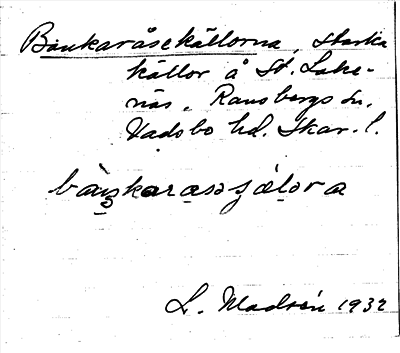 Bänkaråsekällorna, starka
källor å St. Lake-
näs, Ransbergs sn,
Vadsbo hd. Skar. l.
L. Madsén 1932